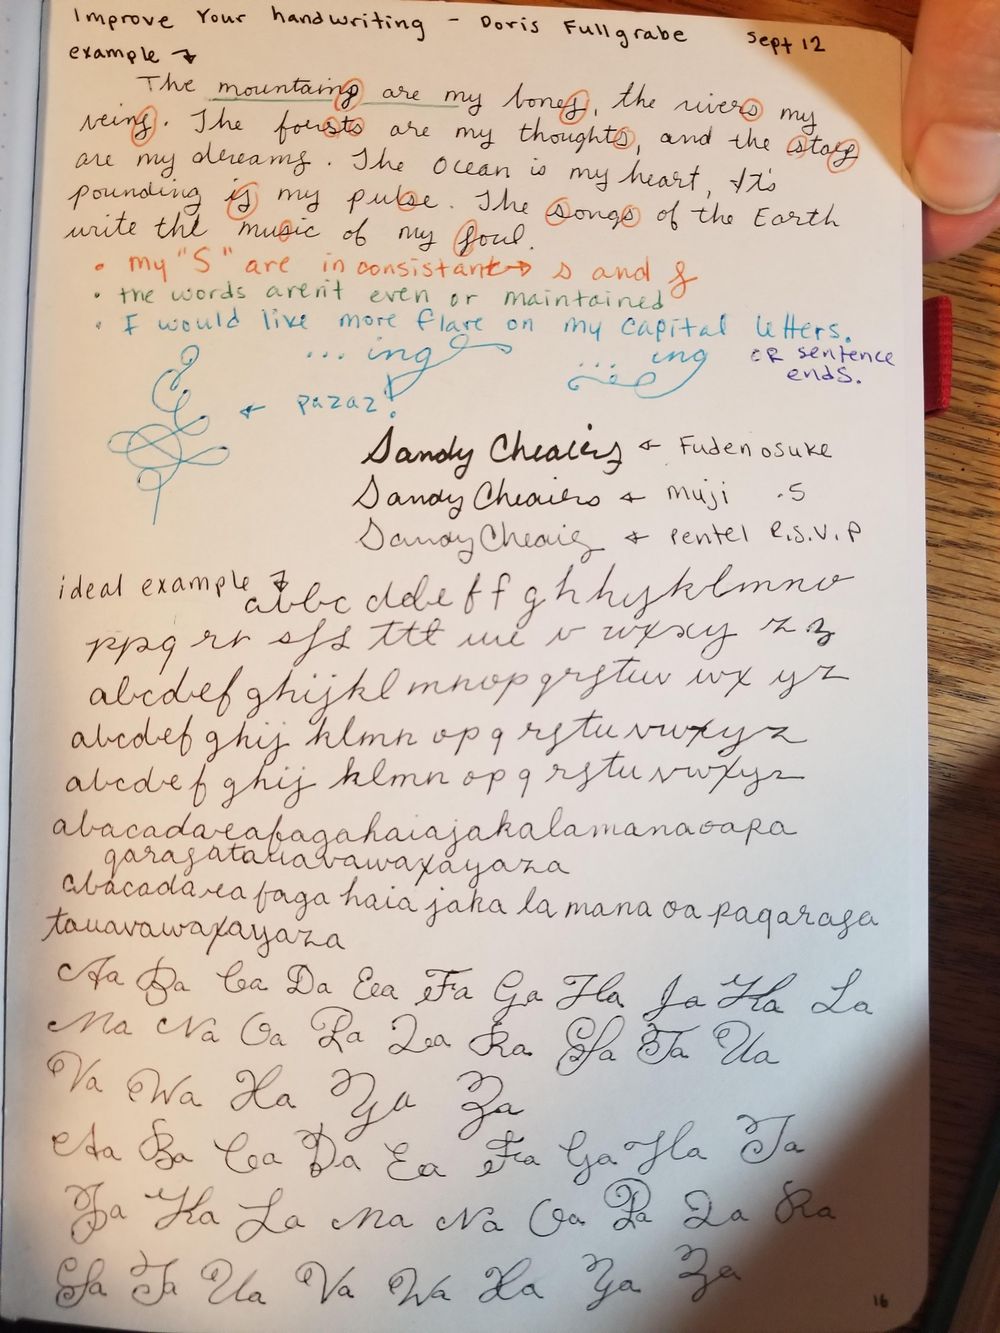 Improve Your handwriting - Doris Fullgrabe Sept 12
example
The mountains are my bones, the rivers my
veins. The forests are my thoughts, and the stars
are my dreams. The Ocean is my heart, It's
pounding is my pulse. The songs of the Earth
write the music of my soul.
• my "S" are in consistant → s and s
• the words aren't even or maintained
• I would like more flare on my capital letters.
... ing ... ing OR sentence
ends.
← pazaz!
Sandy ← Fudenosuke
Sandy ← muji .5
Sandy ← Pentel R.S.V.P
ideal example
abbc dde f f g h hijklmno
ppq rr sss ttt uu v wxxy z z
abcdef ghijkl mnop qrstuv wx yz
abcdef ghij klmn op q rstuvwxyz
abcdef ghij klmn op q rstuvwxyz
abacadaeafagahaiajakalamanaoapa
qarasatauavawaxayaza
abacadaeafaga haia jaka la mana oa paqarasa
tauavawaxayaza
Aa Ba Ca Da Ea Fa Ga Ha Ja Ka La
Ma Na Oa Pa Qa Ra Sa Ta Ua
Va Wa Xa Ya Za
Aa Ba Ca Da Ea Fa Ga Ha Ia
Ja Ka La Ma Na Oa Pa Qa Ra
Sa Ta Ua Va Wa Xa Ya Za
16